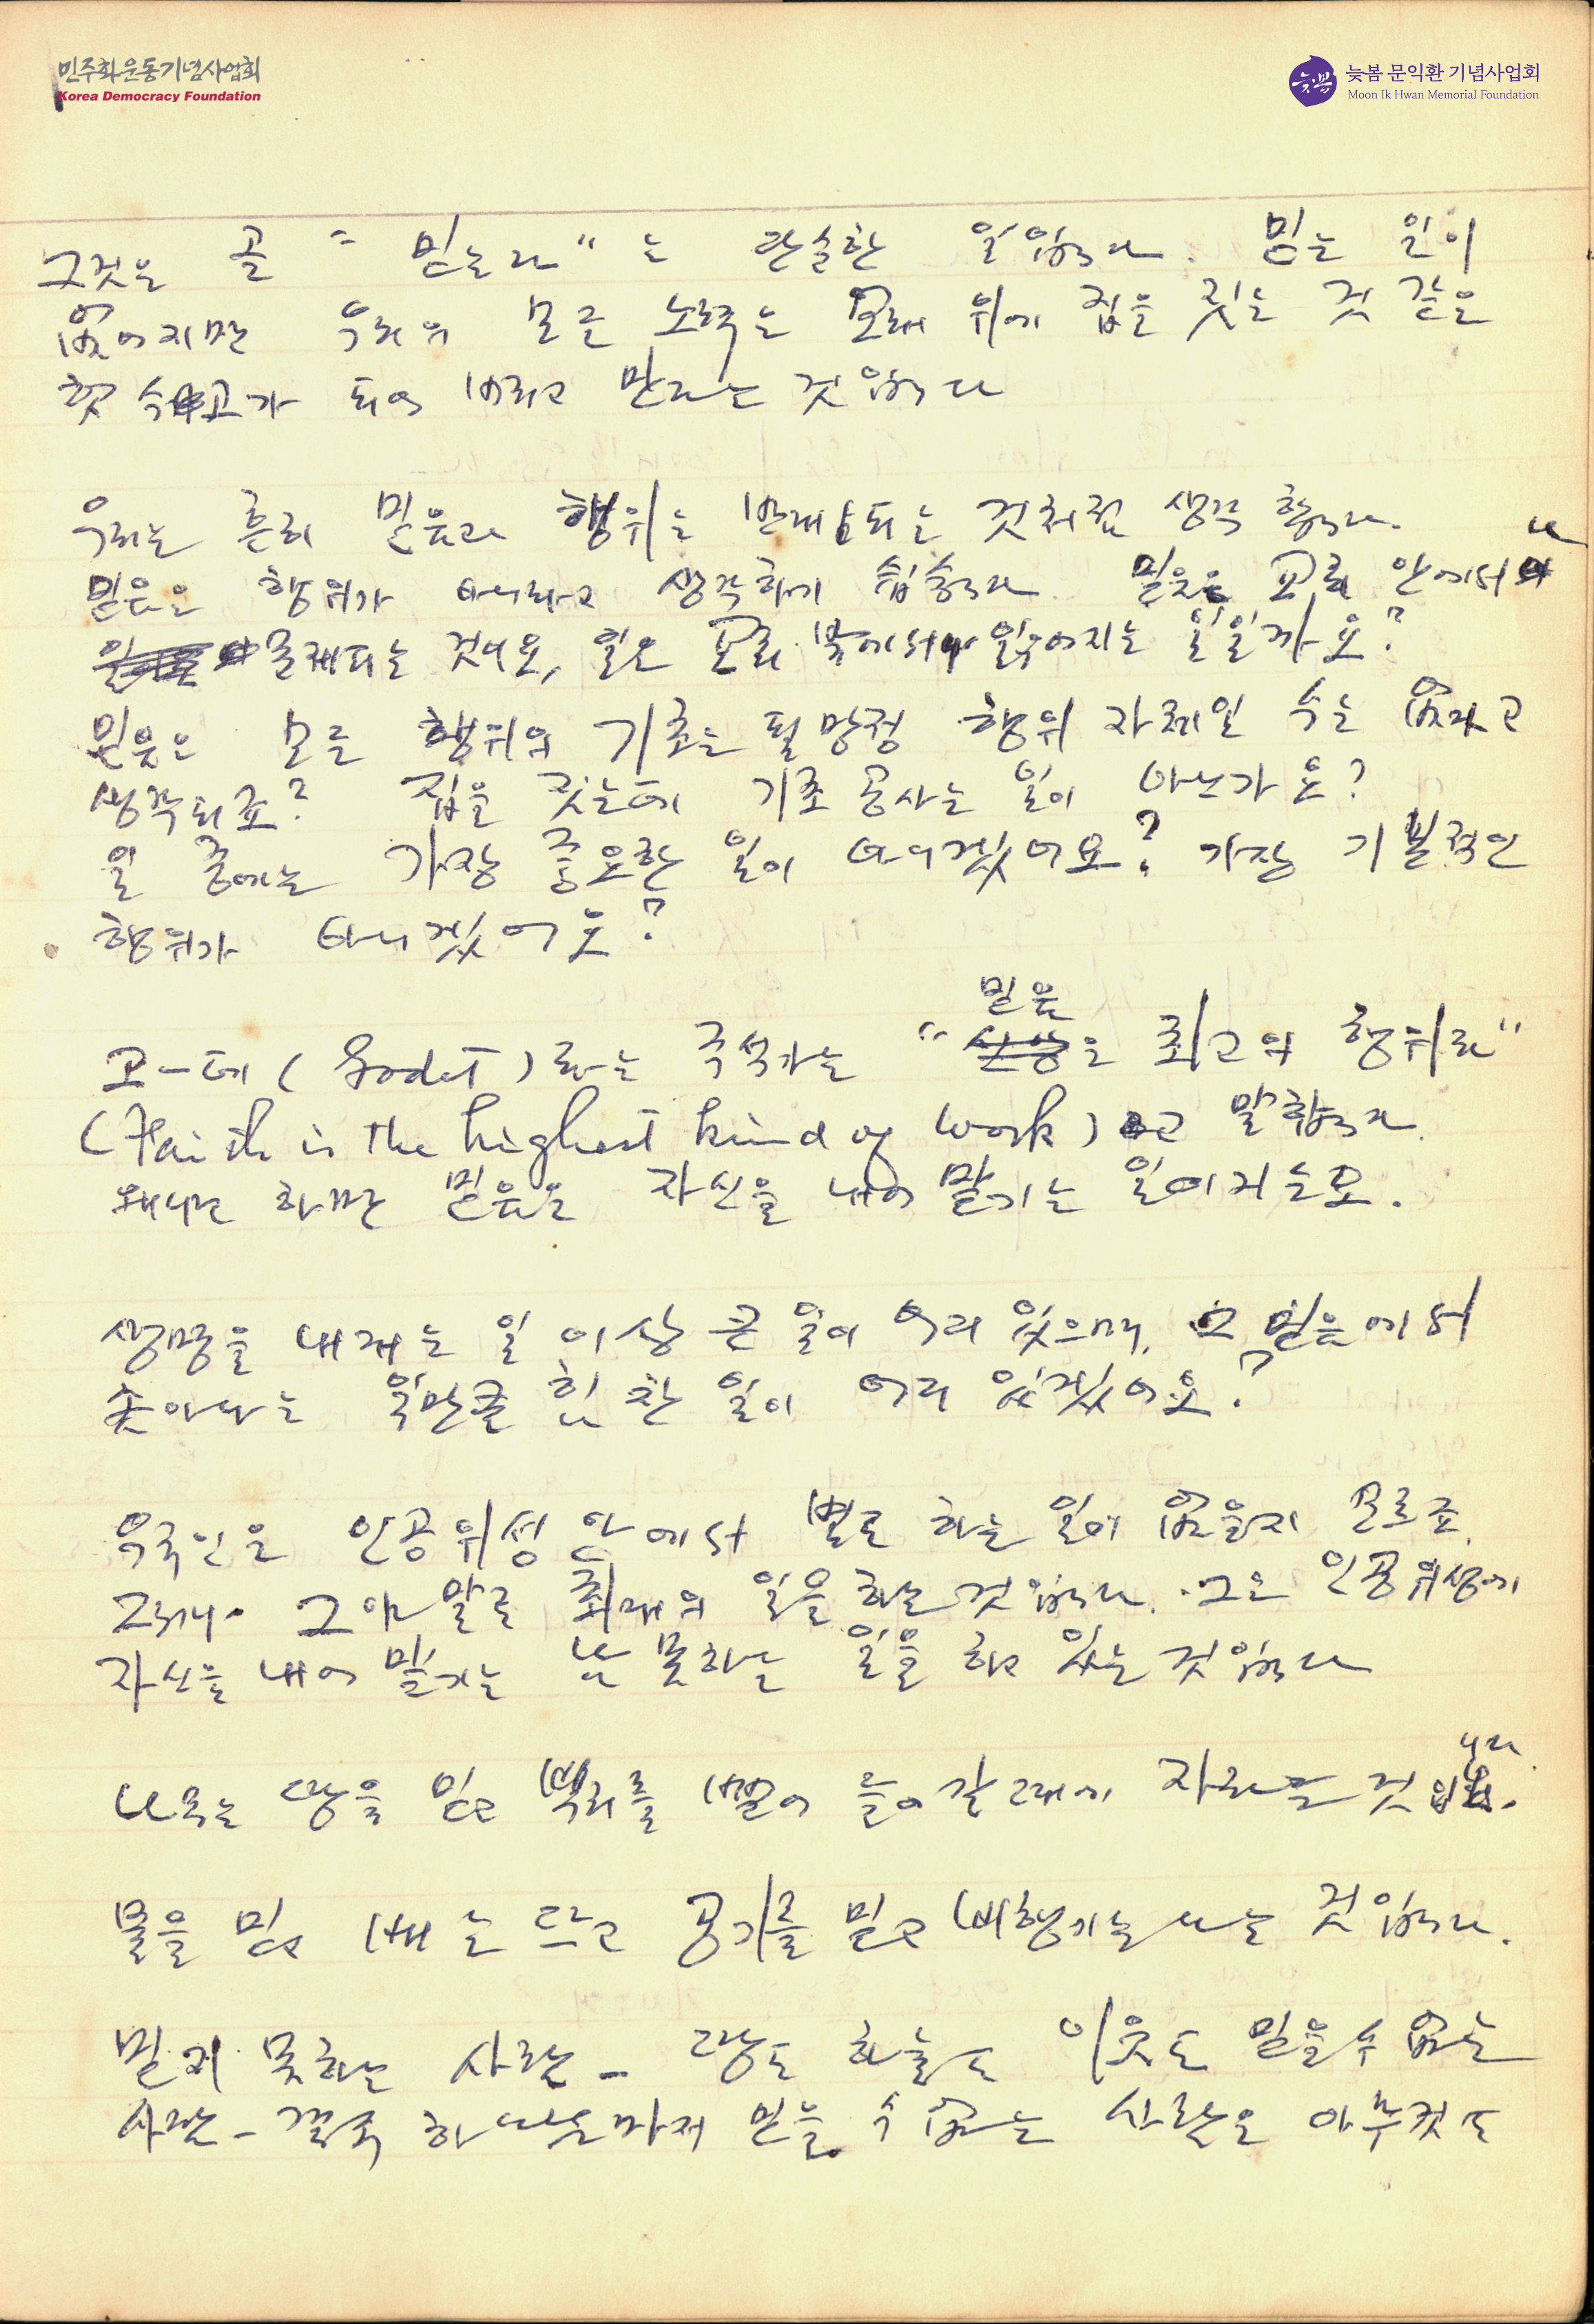 민주화운동기념사업회
Korea Democracy Foundation
늦봄 문익환 기념사업회
Moon Ik Hwan Memorial Foundation
그것은 곧 "믿는다"는 단순한 일입니다. 믿는 일이
없어지만 우리의 모든 노력은 모래 위에 집을 짓는 것 같은
헛 수고가 되어 버리고 만다는 것입니다
우리는 흔히 믿음과 행위는 반대되는 것처럼 생각합니다.
믿음은 행위가 아니라고 생각하기 쉽습니다 믿음은 교회 안에서나
문제되는 것이요, 일은 교회 밖에서나 있어지는 일일까요?
믿음은 모든 행위의 기초는 될 망정 행위 자체일 수는 없다고
생각되죠? 집을 짓는데 기초 공사는 일이 아닌가요?
일 중에는 가장 중요한 일이 아니겠어요? 가장 기본적인
행위가 아니겠어요?
고—데 (Godet)라는 주석가는 "믿음은 최고의 행위라"
(Faith is the highest kind of work)고 말합니다.
왜냐 하면 믿음은 자신을 내어 맡기는 일이거든요.
생명을 내거는 일 이상 큰 일이 어디 있으며, 그 믿음에서
솟아나는 일만큼 힘찬 일이 어디 있겠어요?
우주인은 인공위성 안에서 별로 하는 일이 없을지 모르죠.
그러나 그야말로 최대의 일을 하는 것입니다. 그는 인공위성에
자신을 내어 맡기는 남 못하는 일을 하고 있는 것입니다
나무는 땅을 믿고 뿌리를 뻗어 들어갈 때에 자라는 것입니다.
물을 믿고 배는 뜨고 공기를 믿고 비행기는 나는 것입니다.
믿지 못하는 사람 – 땅도 하늘도 이웃도 믿을 수 없는
사람 – 결국 하나님까지 믿을 수 없는 사람은 아무것도